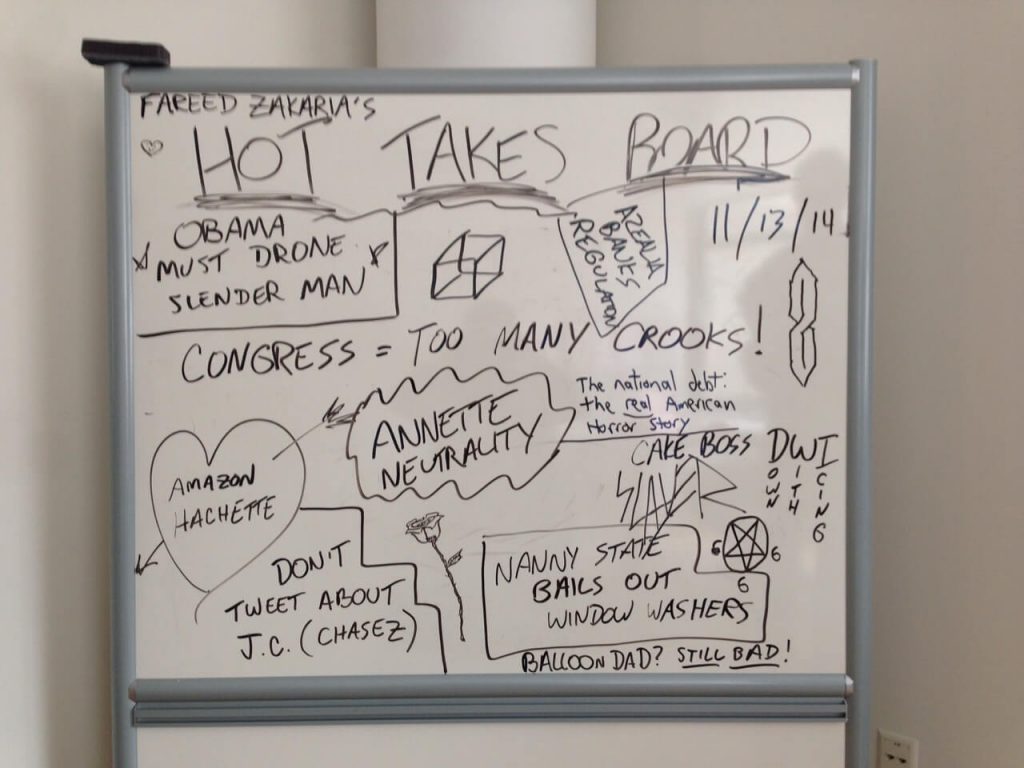 FAREED ZAKARIA'S
HOT TAKES BOARD
11/13/14
OBAMA
MUST DRONE
SLENDER MAN
AZEALIA
BANKS
REGULATION
CONGRESS = TOO MANY CROOKS!
The national debt:
the real American
Horror Story
ANNETTE
NEUTRALITY
AMAZON
HACHETTE
CAKE BOSS
SLAYER
DWI
OWN
ITH
CING
DON'T
TWEET ABOUT
J.C. (CHASEZ)
6 6
6
NANNY STATE
BAILS OUT
WINDOW WASHERS
BALLOON DAD? STILL BAD!